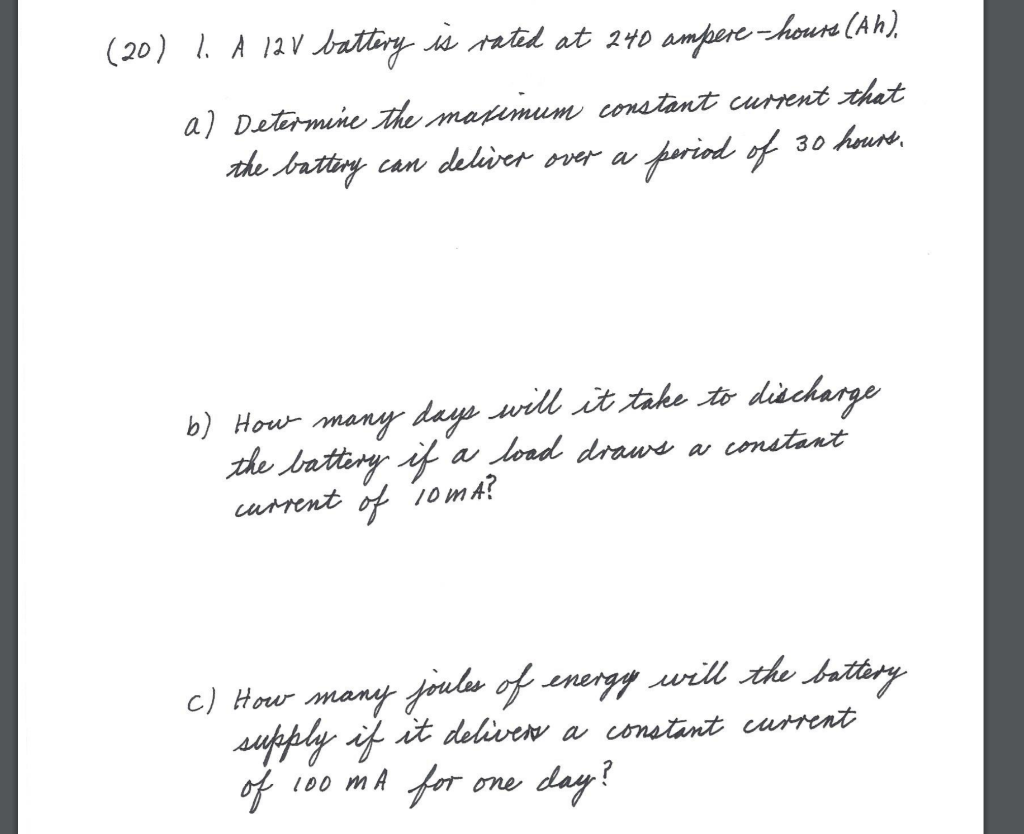 (20) 1. A 12V battery is rated at 240 ampere-hours (Ah).
a) Determine the maximum constant current that
the battery can deliver over a period of 30 hours.
b) How many days will it take to discharge
the battery if a load draws a constant
current of 10mA?
c) How many joules of energy will the battery
supply if it delivers a constant current
of 100 mA for one day?